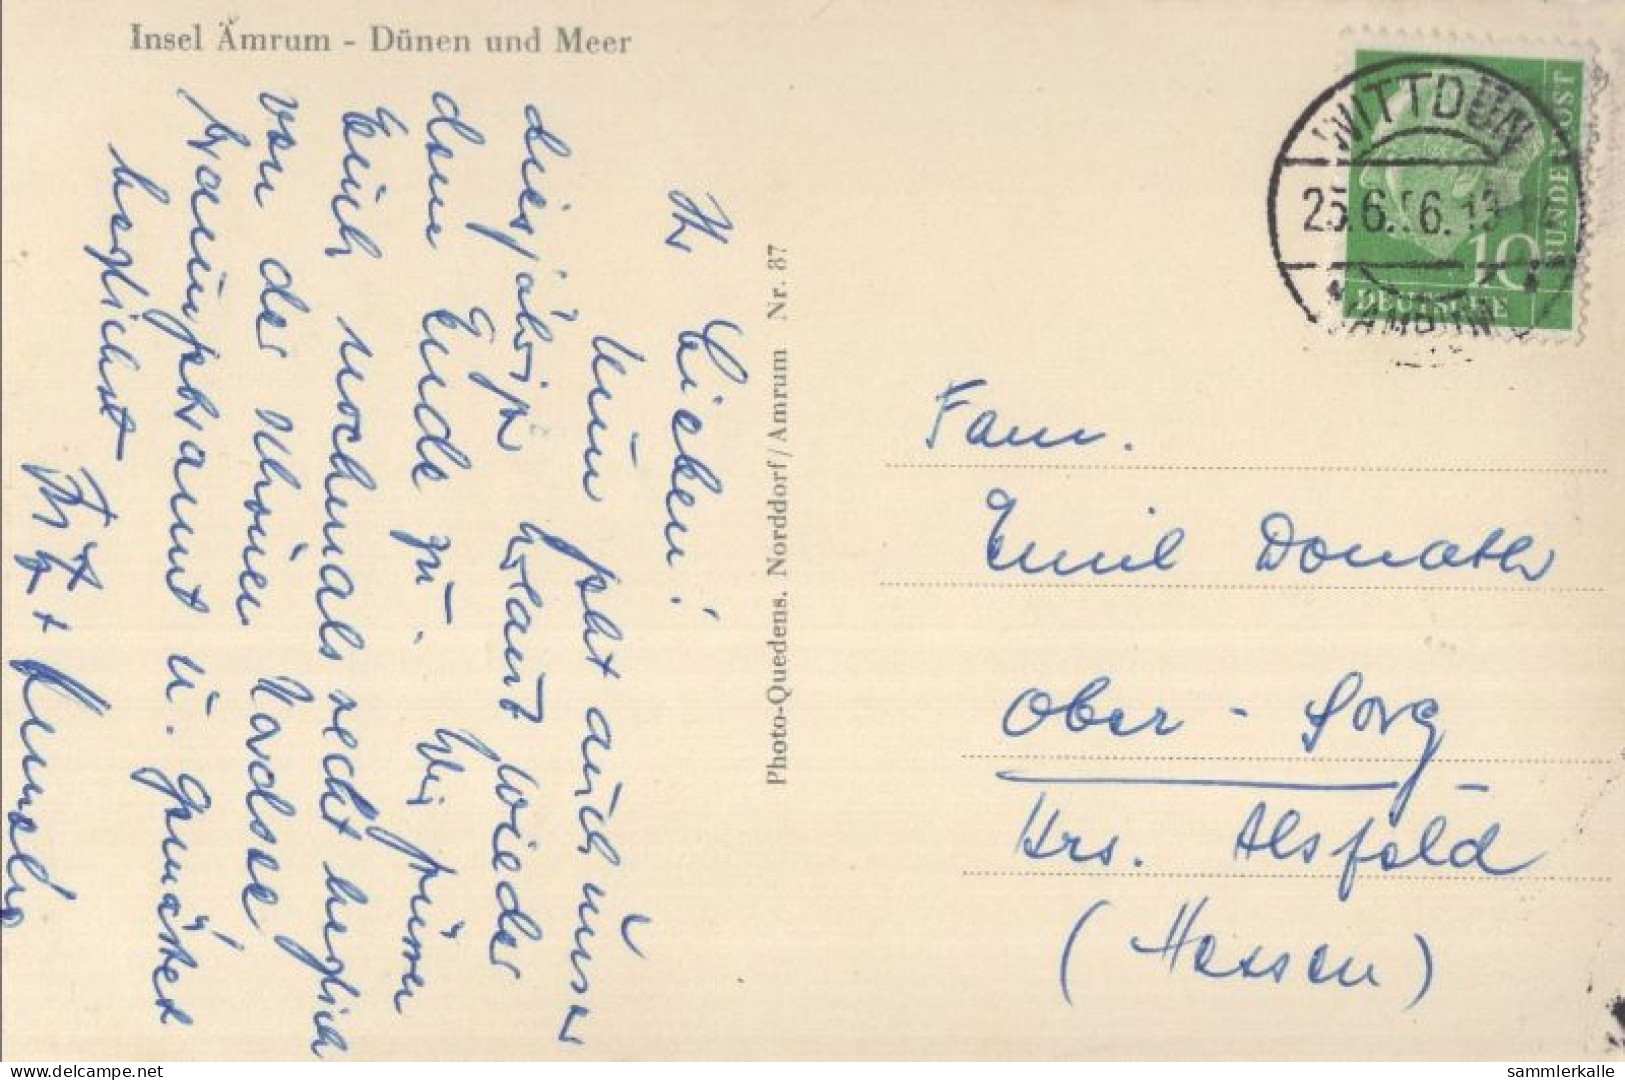 Insel Ämrum - Dünen und Meer
Ihr Lieben!
Nun geht auch unser
diesjähriger Urlaub wieder
dem Ende zu. Wir grüßen
Euch nochmals recht herzlich
von der schönen Nordsee
u. 
herzlichst
Fritz +
Photo-Quedens, Norddorf/Amrum Nr. 87
WITTDÜN
25.6.56.13
BUNDESPOST
10
DEUTSCHE
Fam.
Emil Donath
Ober-Sorg
Krs. Alsfeld
(Hessen)
www.delcampe.net
sammlerkalle